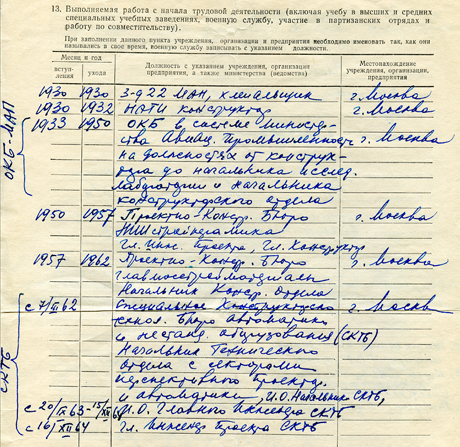 13. Выполняемая работа с начала трудовой деятельности (включая учебу в высших и средних
специальных учебных заведениях, военную службу, участие в партизанских отрядах и
работу по совместительству).
При заполнении данного пункта учреждения, организации и предприятия необходимо именовать так, как они
назывались в свое время, военную службу записывать с указанием должности.
Месяц и год
вступления
ухода
Должность с указанием учреждения, организации,
предприятия, а также министерства (ведомства)
Местонахождение
учреждения, организации,
предприятия
1930 1930 з-д 22 МАП, г. Москва
1930 1932 НАТИ конструктор г. Москва
ОКБ-МАП
1933 1950 ОКБ в системе Министер-
ства Авиац. Промышленности г. Москва
на должностях от конструк-
тора до начальника исслед.
лаборатории и начальника
конструкторского отдела
1950 1957 Проектно-Констр. Бюро г. Москва
НИИстройкерамика
Гл. инж. проекта, Гл. конструктор
1957 1962 Проектно-Констр. Бюро г. Москва
Главмосстройматериалы
Начальник Констр. отдела
СКТБ
с 7/ 62 Специальное Конструкторско г. Москва
Бюро автоматики
и нестанд. оборудования (СКТБ)
Начальник Технического
отдела с секторами
перспективного проектир.
и автоматики, И.О. Начальника СКТБ,
с 20/IX 63-15/XII 64 И.О. Главного Инженера СКТБ
с 16/XII 64 Гл. Инженер Проекта СКТБ